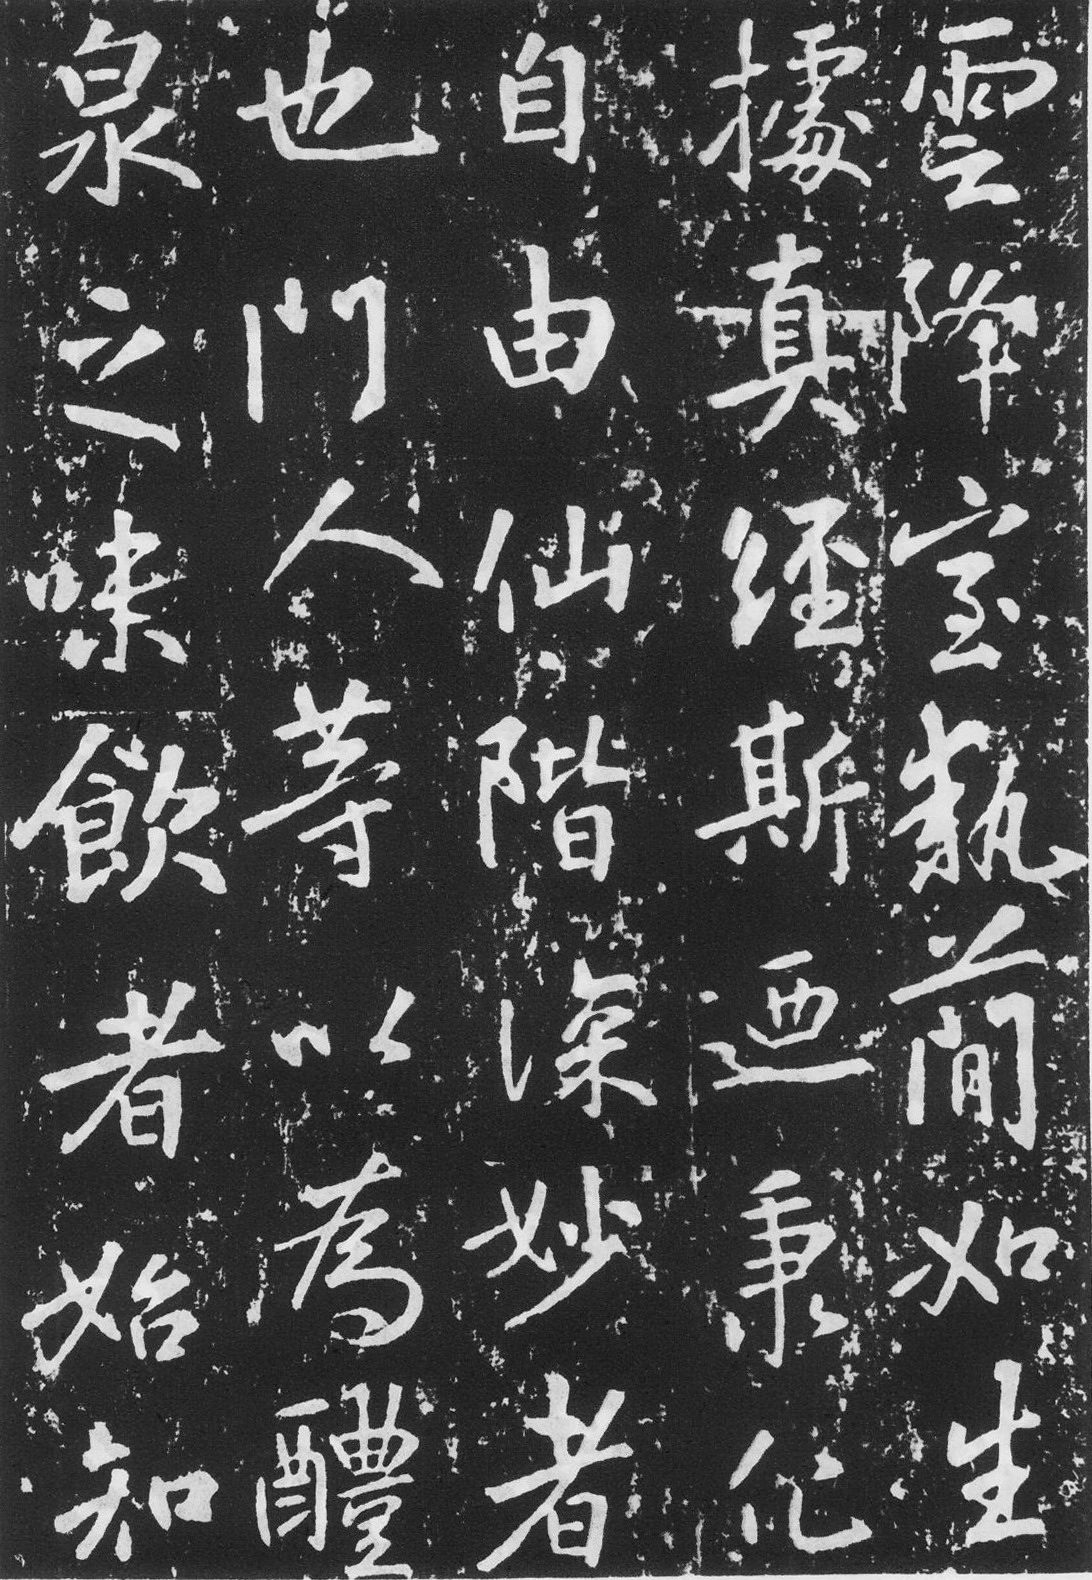 雲降室執蕳如生
據真經斯迺秉化
自由仙階深妙者
也門人等以為醴
泉之味飲者始知